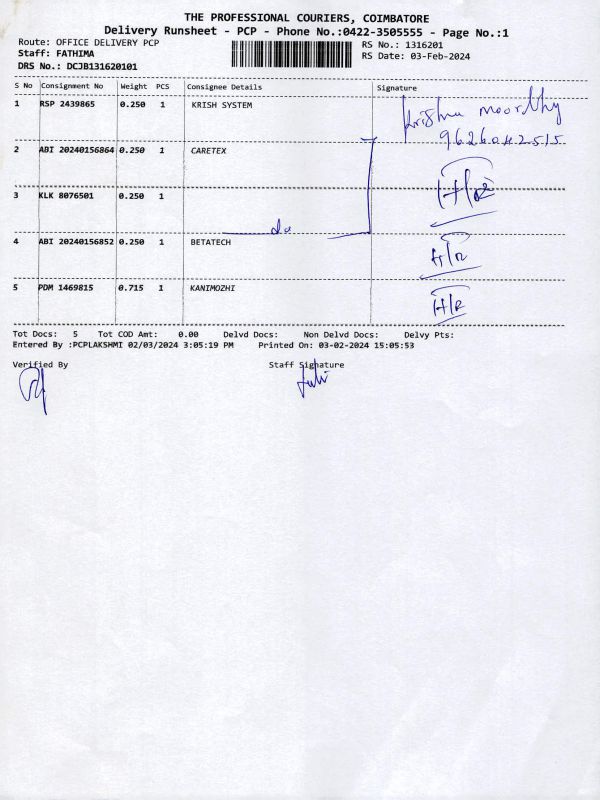 THE PROFESSIONAL COURIERS, COIMBATORE
Delivery Runsheet - PCP - Phone No.:0422-3505555 - Page No.:1
Route: OFFICE DELIVERY PCP RS No.: 1316201
Staff: FATHIMA RS Date: 03-Feb-2024
DRS No.: DCJB131620101
S No Consignment No Weight PCS Consignee Details Signature
1 RSP 2439865 0.250 1 KRISH SYSTEM Krishna moorthy
9626042515
2 ABI 20240156864 0.250 1 CARETEX
3 KLK 8076501 0.250 1
do
4 ABI 20240156852 0.250 1 BETATECH H/R
5 PDM 1469815 0.715 1 KANIMOZHI H/R
Tot Docs: 5 Tot COD Amt: 0.00 Delvd Docs: Non Delvd Docs: Delvy Pts:
Entered By :PCPLAKSHMI 02/03/2024 3:05:19 PM Printed On: 03-02-2024 15:05:53
Verified By Staff Signature